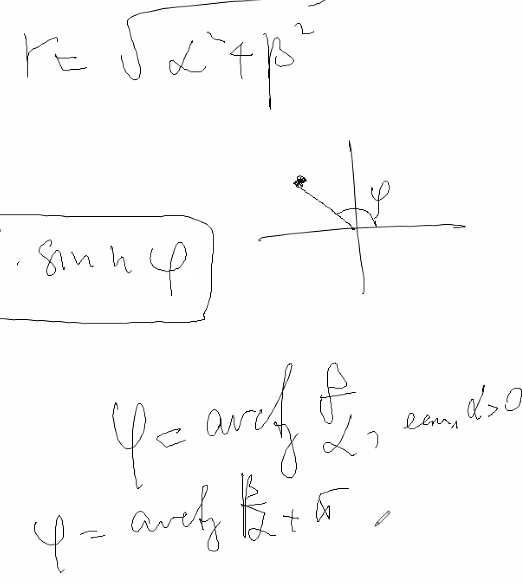 r = √α² + β²
φ
. sin n φ
φ = arctg β/α, если α > 0
φ = arctg β/α + π,